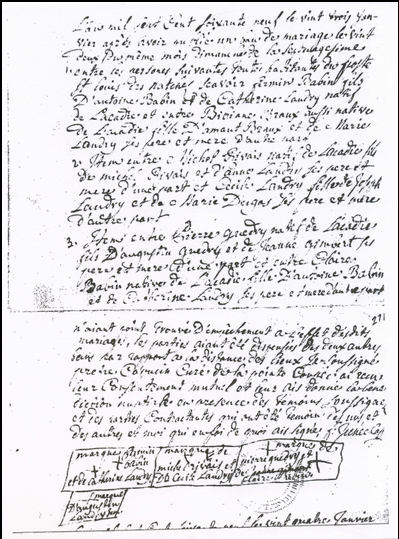 L'an mil sept cent soixante neuf le vint trois jan-
vier après avoir publié un ban de mariage le vint
deux du même mois dimanche de la septuagesime
entre les persones suivantes touts habitants du poste
St louis des natches scavoir firmin Babin fils
D'antoine Babin et de Catherine Landry natif
de Lacadie et entre Braux aussi native
de Lacadie fille D'amant Braux et de Marie
Landry ses pere et mere d'autre part
2 Item entre Michel Rivais natif de Lacadie fils
de Rivais et d'anne Landry ses pere et
mere d'une part et Cecile Landry fille de Joseph
Landry et de Marie Dugas ses pere et mere
d'autre part
3. Item entre Pierre Guedry natif de Lacadie
fils D'augustin Guedry et de Jeanne ses
pere et mere d'une part et entre Claire
Babin native de Lacadie fille D'antoine Babin
et de Catherine Landry ses pere et mere d'autre part
271
n'aiant point trouvé D'empechement a l'effet desdits
mariage, les parties aiant été dispensées des deux autres
bans par rapport a la distance des lieux Je soussigné
pretre Capucin Curé de la pointe Coupée ai reçu
leur Consentement mutuel et leur ais donné la bene
diction nuptiale en presence des temoins soussignes
et des parties Contractantes qui ont été temoin les uns et
des autres et moi en foi de quoi ais signés f.
marque firmin babin marque de marque de
et de Catherine Landry michel rivais et pierre guedry et
De Cecile Landry de claire babin
marque
D'augustin
Landry
vint quatre Janvier